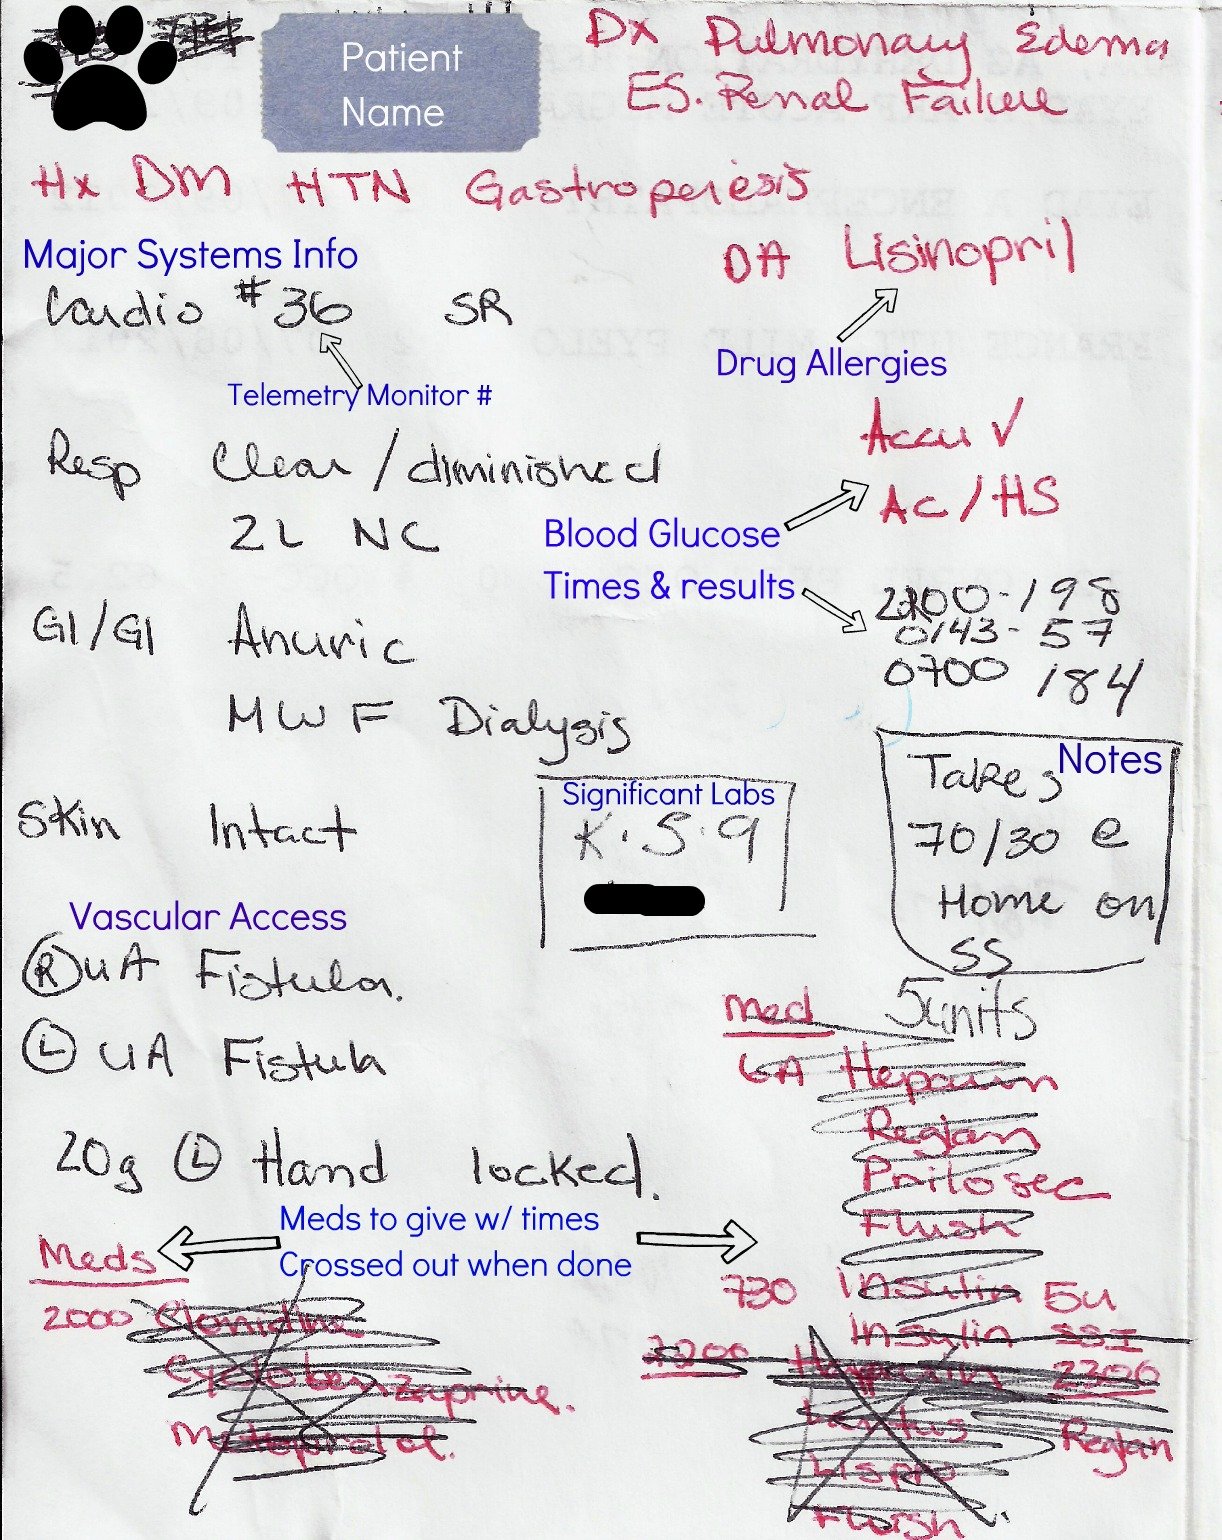 Patient
Name
Dx Pulmonary Edema
ES. Renal Failure
Hx DM HTN Gastroperesis
Major Systems Info
DA Lisinopril
Cardio #36 SR
Drug Allergies
Telemetry Monitor #
Accu √
Resp Clear/diminished
AC/HS
2L NC
Blood Glucose
Times & results
2200-198
0143-57
0700 184
GI/GI Anuric
MWF Dialysis
Notes
Takes
70/30 @
Home on
SS
5units
Significant Labs
K. 5.9
Skin Intact
Vascular Access
(R) UA Fistula.
(L) UA Fistula
20g (L) Hand locked.
Meds to give w/ times
Crossed out when done
Meds
2000 Clonidine
Cyclobenzaprine.
Metoprolol.
Med
6A Heparin
Reglan
Prilosec
Flush
730 Insulin 5u
Insulin SSI
2200 Heparin 2300
Lantus Reglan
Lispro
Flush